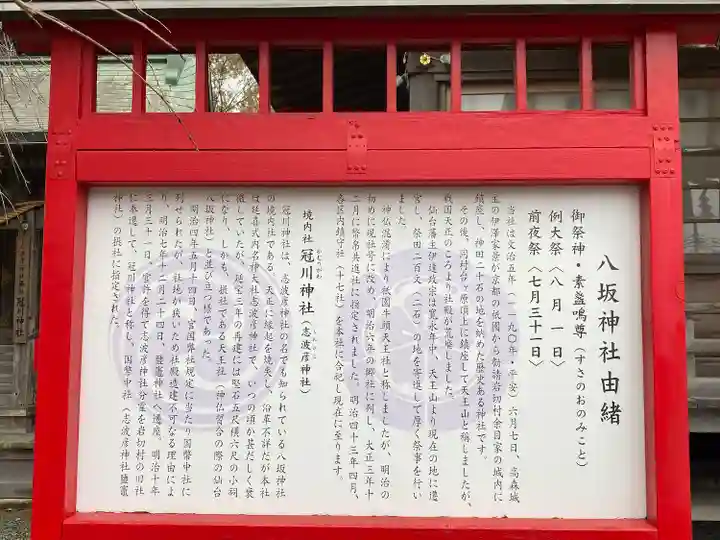 八坂神社由緒
御祭神・素盞嗚尊〈すさのおのみこと〉
例大祭〈八月一日〉
前夜祭〈七月三十一日〉
当社は文治五年(一一九〇年・平安)六月七日、高森城
主の伊澤家景が京都の祇園から勧請岩切村余目家の城内に
鎮座し、神田二十石の地を納めた歴史ある神社です。
その後、同村台ヶ原頂上に鎮座して天王山と称しましたが、
戦国天正のころより社殿が荒廃しました。
仙台藩主伊達政宗は寛永年中、天王山より現在の地に遷
宮し、祭田二百文(二石)の地を寄進して厚く祭事を行い
ました。
神仏混淆により祇園牛頭天王社と称しましたが、明治の
初めに現社号に改め、明治六年の郷社に列し、大正三年十
二月に幣帛共進社に指定されました。明治四十三年四月、
各区内鎮守社(十七社)を本社に合祀し現在に至ります。
境内社 冠川神社(志波彦神社)
かむりがわ
冠川神社は、志波彦神社の名でも知られている八坂神社
の境内社である。天正に縁起を焼失し、沿革不詳だが本社
は延喜式内名神大社志波彦神社で、いつの頃か甚だしく衰
微していたが、延宝三年の再建には堅石五尺横六尺の小祠
になり、しかも、摂社である天王社(神仏習合の際の仙台
八坂神社)と並び立つ様であった。
明治四年五月十四日、官国弊社規定に当たり国幣中社に
列せられたが、社地が狭いため社殿造建不可なる理由によ
り、明治七年十二月二十四日、鹽竈神社へ遷座、明治十年
三月三十一日、官許を得て志波彦神社分霊を岩切村の旧社
に奉還して、冠川神社と称し、国幣中社(志波彦神社鹽竈
神社)の摂社に指定された。
冠川神社